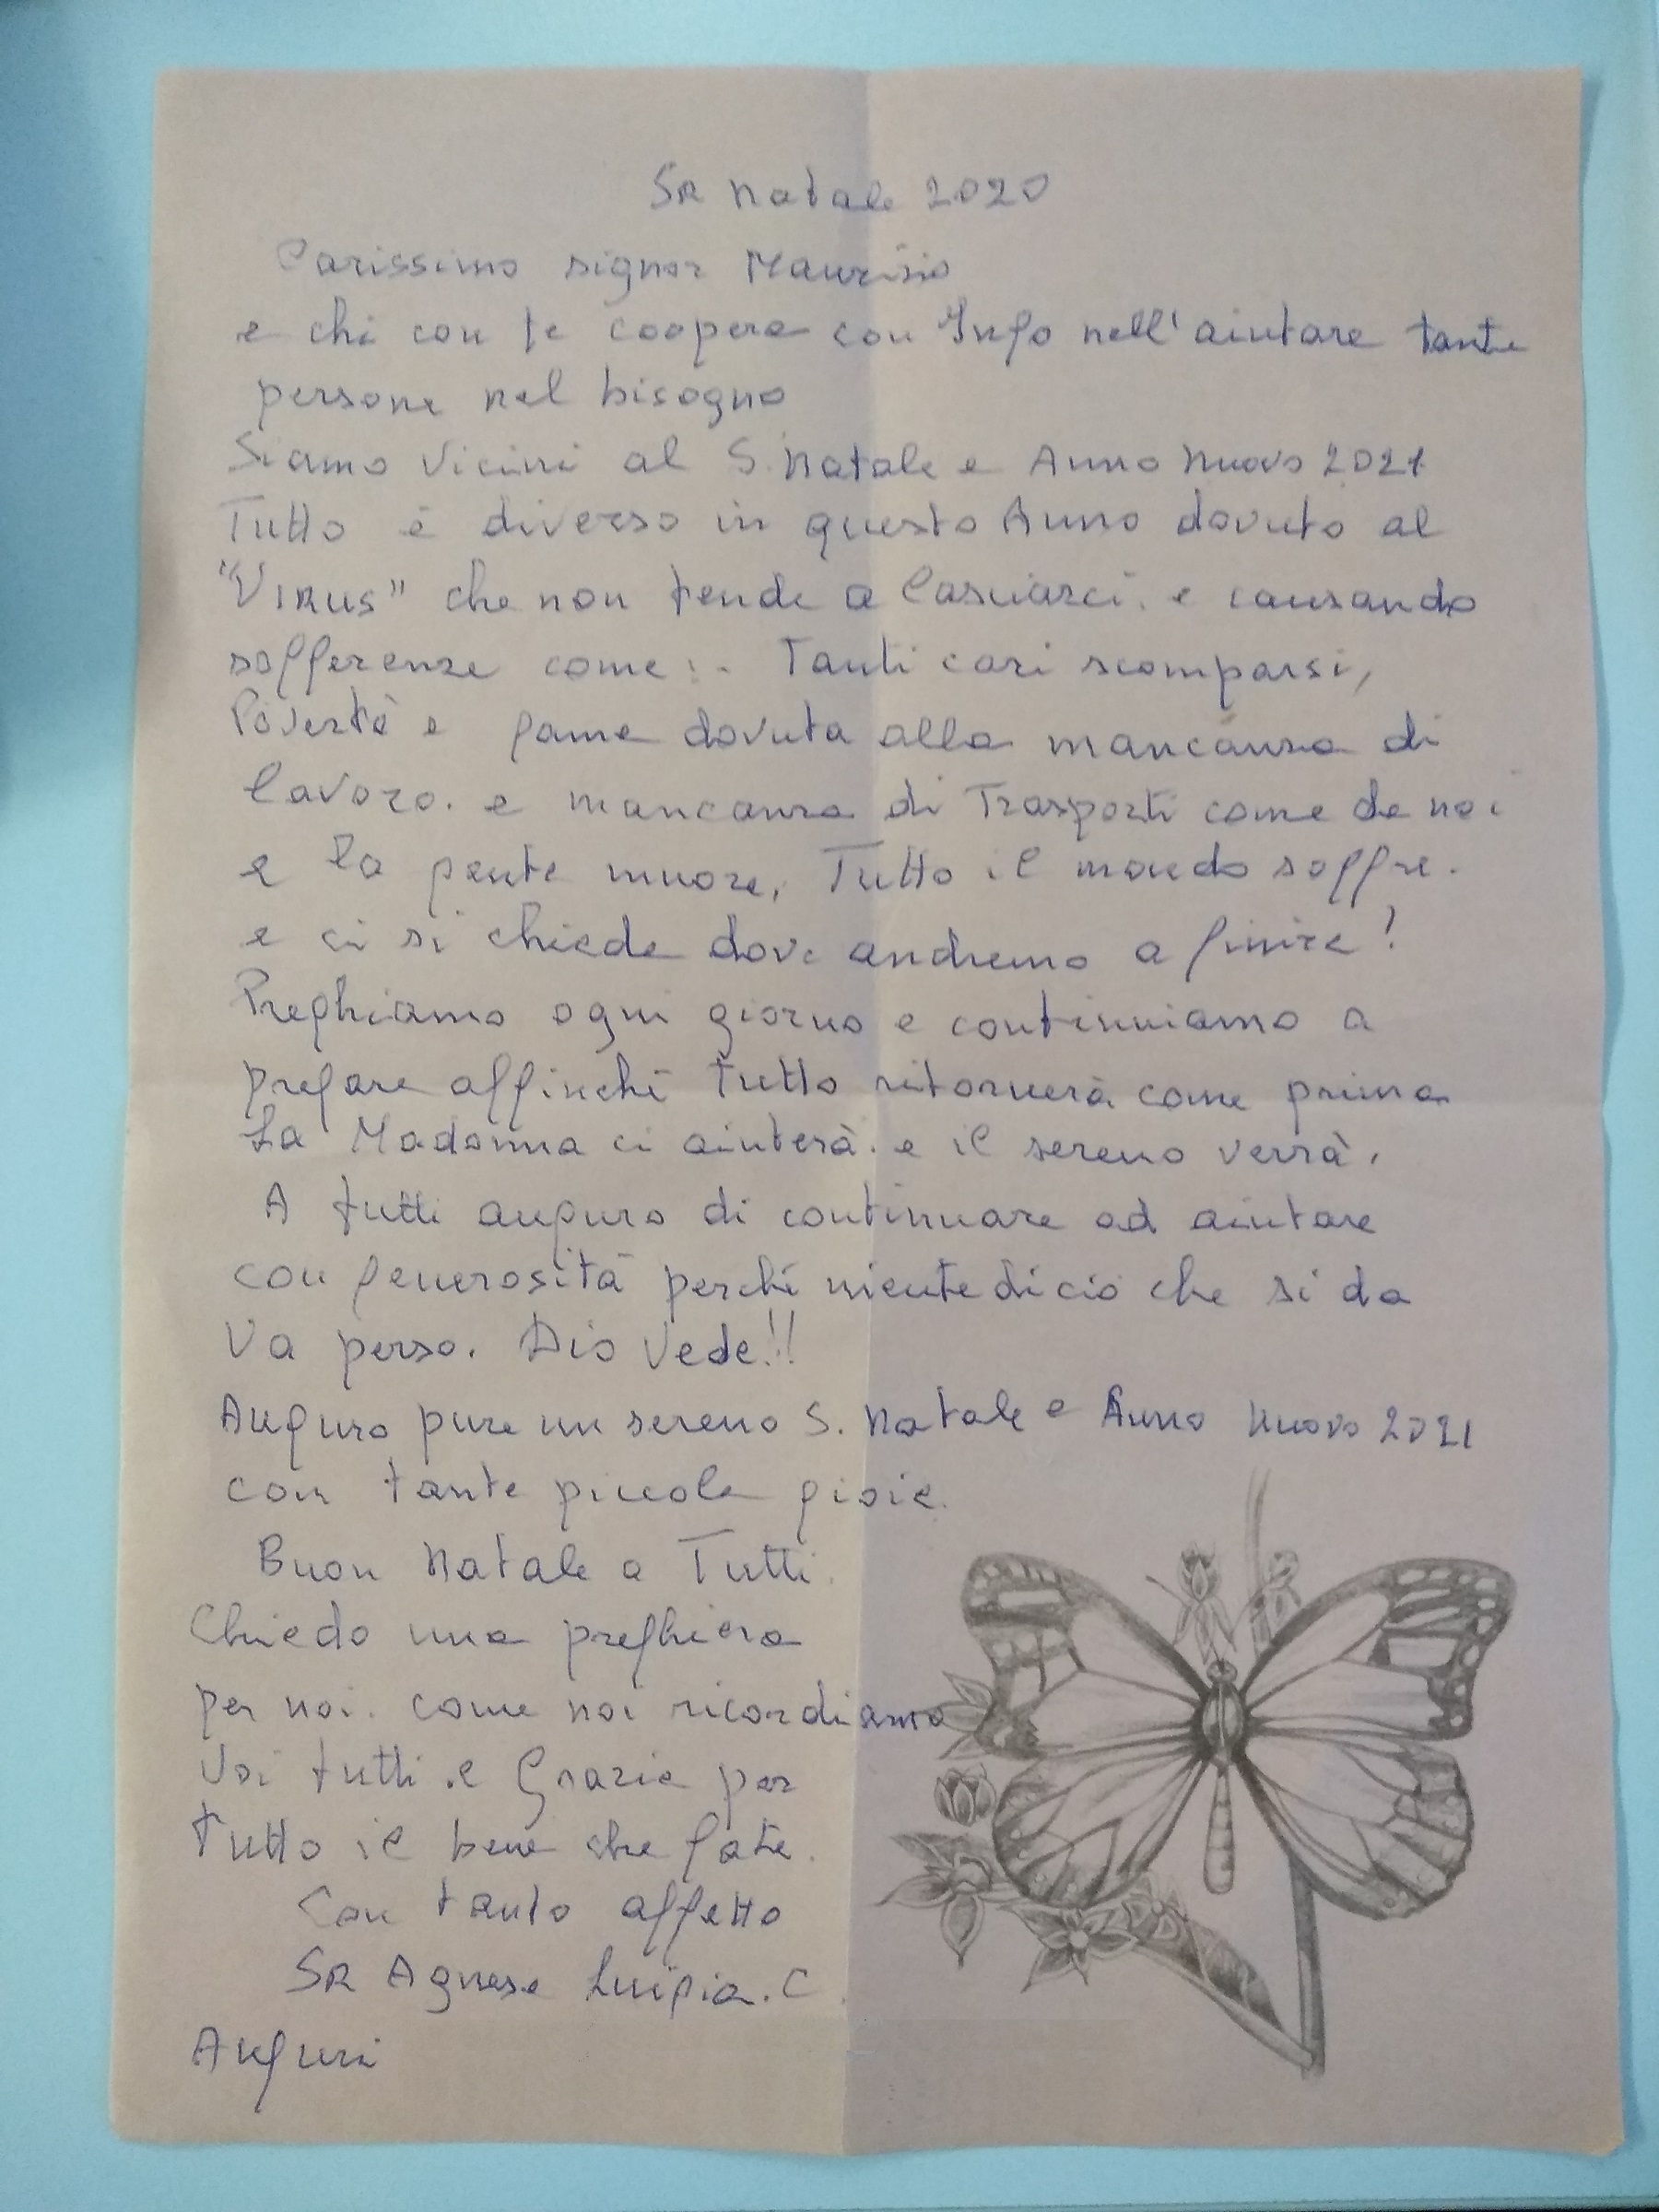 SR Natale 2020
Carissimo signor Maurizio
e chi con te coopera con Info nell'aiutare tante
persone nel bisogno
Siamo Vicini al S. Natale e Anno Nuovo 2021
Tutto è diverso in questo Anno dovuto al
"VIRUS" che non tende a lasciarci. e causando
sofferenze come:. Tanti cari scomparsi,
Povertà e fame dovuta alla mancanza di
lavoro. e mancanza di Trasporti come da noi
e la gente muore, Tutto il mondo soffre.
e ci si chiede dove andremo a finire!
Preghiamo ogni giorno e continuiamo a
pregare affinché tutto ritornerà come prima
La Madonna ci aiuterà. e il sereno verrà,
A tutti auguro di continuare ad aiutare
con generosità perché niente di ciò che si da
Va perso. Dio Vede!!
Auguro pure un sereno S. Natale e Anno Nuovo 2021
con tante piccole gioie.
Buon Natale a Tutti.
Chiedo una preghiera
per noi. come noi ricordiamo
Voi tutti. e Grazie per
tutto il bene che fate.
Con tanto affetto
SR Agnese Luigia. C.
Auguri